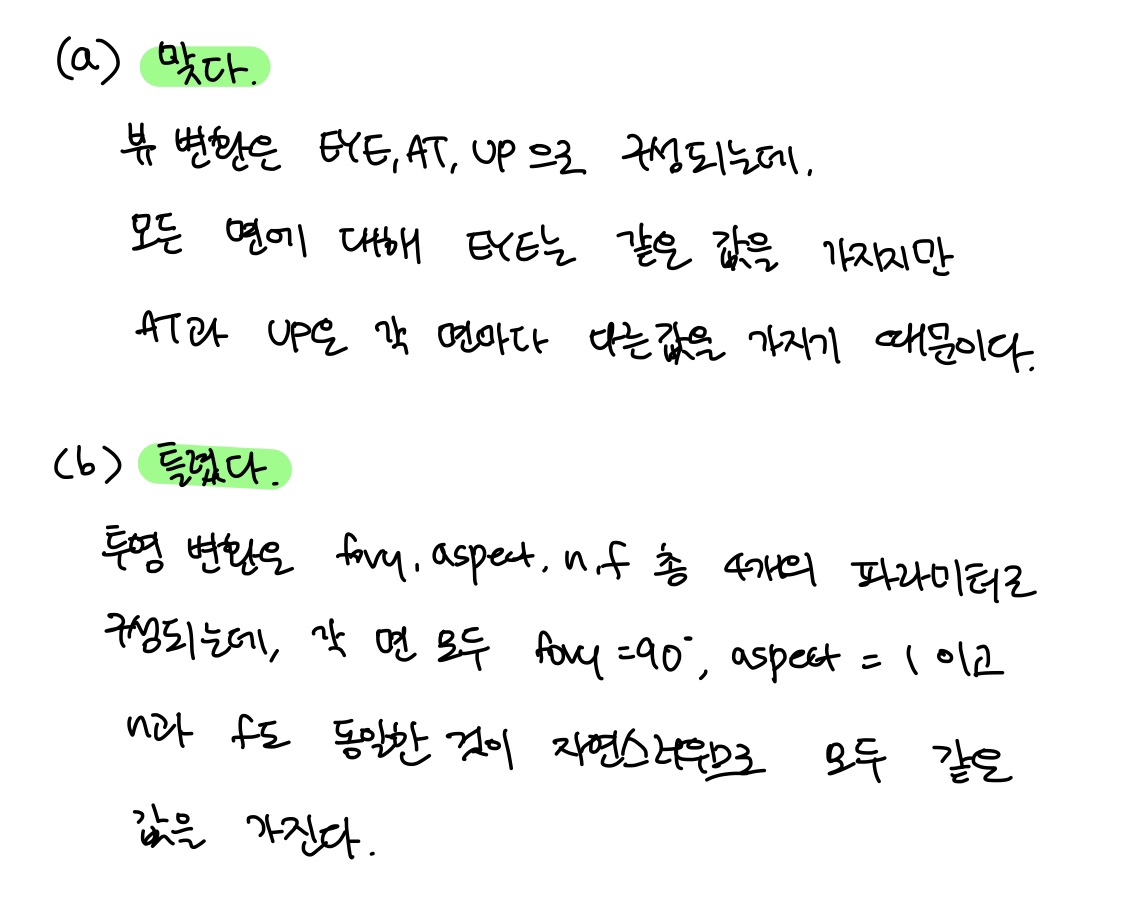 (a) 맞다.
뷰 변환은 EYE, AT, UP으로 구성되는데,
모든 면에 대해 EYE는 같은 값을 가지지만
AT과 UP은 각 면마다 다른값을 가지기 때문이다.
(b) 틀렸다.
투영 변환은 fovy, aspect, n, f 총 4개의 파라미터로
구성되는데, 각 면 모두 fovy = 90°, aspect = 1 이고
n과 f도 동일한 것이 자연스러우므로 모두 같은
값을 가진다.